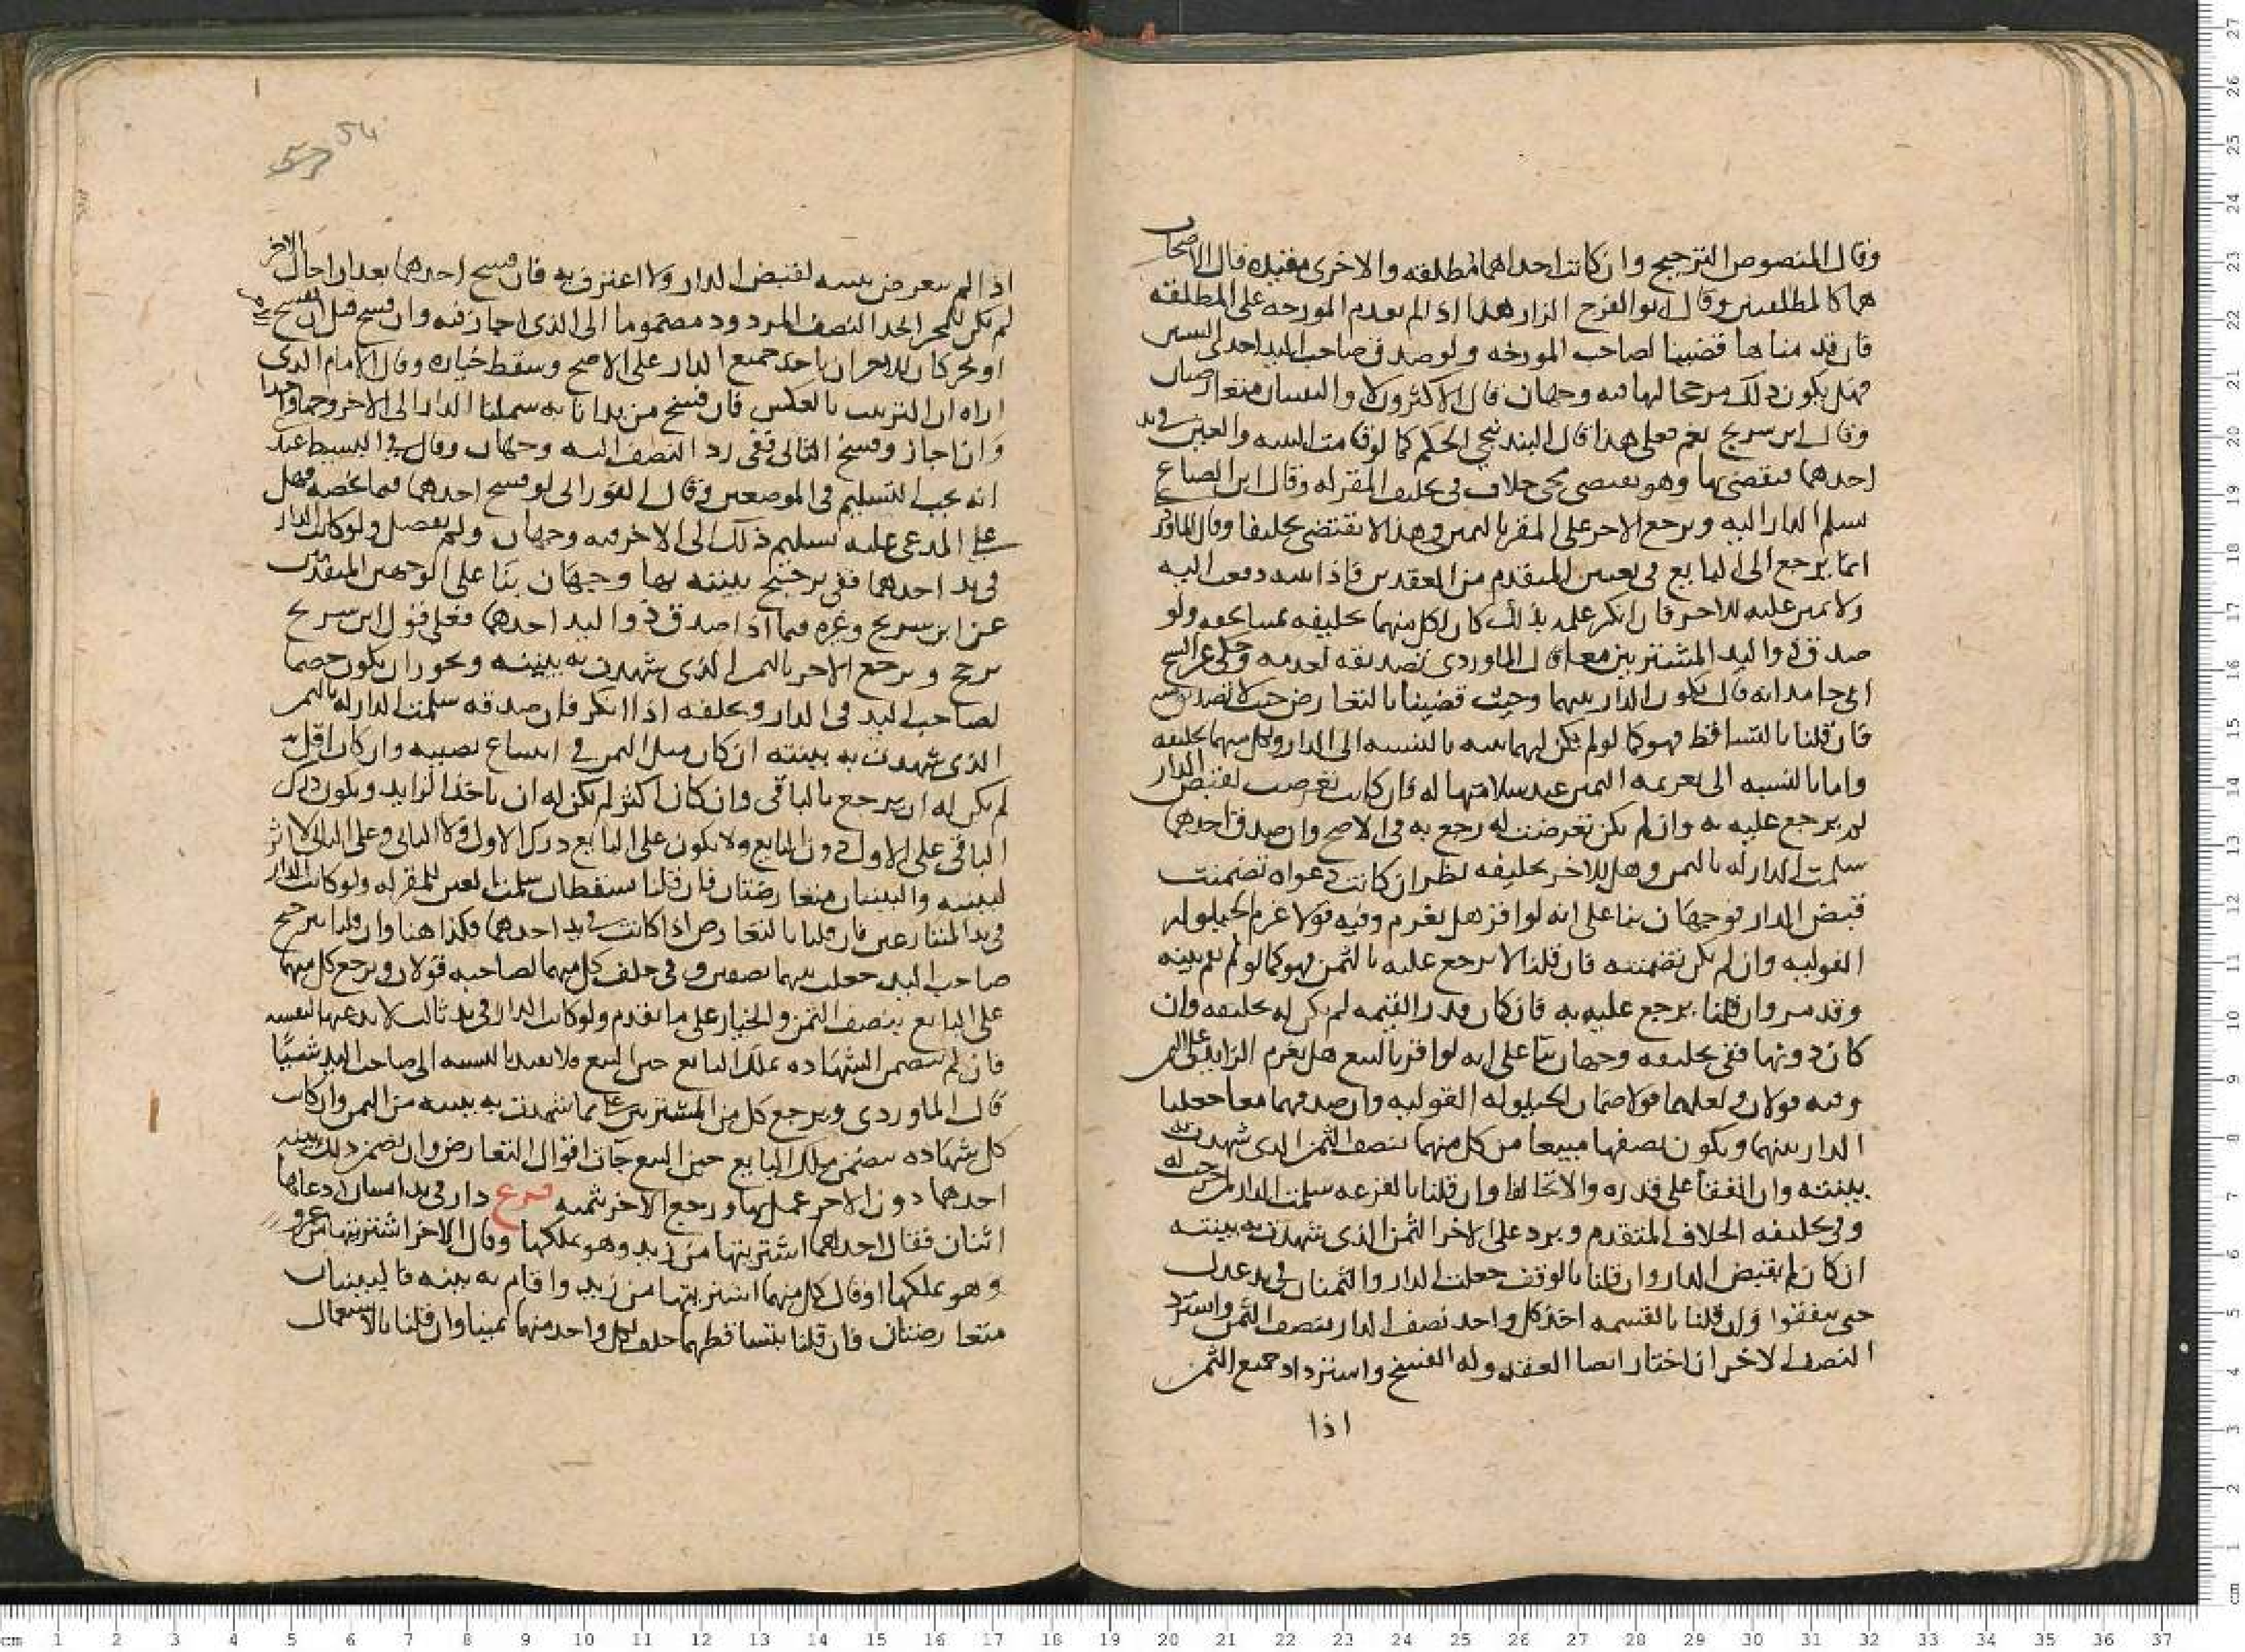 وقال المنصوص الترجيح وان كانت احداهما مطلقه والاخرى مقيده قال الاصحاب
هما كالمطلقتين وقال ابو الفرج الزاز هذا اذا لم يقدم المورخه على المطلقه
فان قدمناها قضينا لصاحب المورخه ولو صدق صاحب اليد احدى البينتين
فهل يكون ذلك مرجحا لها فيه وجهان قال الاكثرون لا والبينتان متعارضتان
وقال ابن سريج نعم فعلى هذا قال البندنيجي الحكم كما لو قامت البينه والعين في يد
احدهما فيقضى بها وهو يقتضي مجي خلاف في تحليف المقر له وقال ابن الصباغ
يسلم الدار اليه ويرجع الاخر على المقر بالثمن وهذا لا يقتضي تحليفا وقال الماوردي
انما يرجع الى البايع في تعيين المتقدم من العقدين فاذا بينه دفعت اليه
ولا يمين عليه للاخر فان انكر علمه بذلك كان لكل منهما تحليفه ولو
صدق ذو اليد المشتريين معا قال الماوردي تصديقه لعدمه وحكى عن الشيخ
ابي حامد انه قال تكون الدار بينهما وحيث قضينا بالتعارض حيث لا تصديق
فان قلنا بالتساقط فهو كما لو لم يكن لهما بينه بالنسبه الى الدار ولكل منهما تحليفه
واما بالنسبه الى تغريمه الثمن عند سلامتها له فان كانت تعرضت لقبض الدار
لم يرجع عليه به وان لم يكن تعرضت له رجع به في الاصح وان صدق احدهما
سلمت الدار له بالثمن وهل للاخر تحليفه نظر ان كانت دعواه تضمنت
قبض الدار فوجهان بناء على انه لو اقر هل يغرم وفيه قولا غرم الحيلوله
القوليه وان لم يكن تضمنته فان قلنا لا يرجع عليه بالثمن فهو كما لو لم تقم بينه
وقد مر وان قلنا يرجع عليه به فان كان قدر القيمه لم يكن له تحليفه وان
كان دونها ففي تحليفه وجهان بنا على انه لو اقر بالبيع هل يغرم الزايد على الثمن
وفيه قولان ولعلهما قولا ضمان الحيلوله القوليه وان صدقهما معا جعلنا
الدار بينهما ويكون نصفها مبيعا من كل منهما بنصف الثمن الذي شهدت به
بينته وان اتفقا على قدره والا تحالفا وان قلنا بالقرعه سلمت الدار لمن خرجت له
وفي تحليفه الخلاف المتقدم ويرد على الاخر الثمن الذي شهدت به بينته
ان كان لم يقبض الدار وان قلنا بالوقف جعلت الدار والثمنان في يد عدل
حتى يتفقوا وان قلنا بالقسمه اخذ كل واحد نصف الدار بنصف الثمن واسترد
النصف الاخر ان اختار امضا العقد وله الفسخ واسترداد جميع الثمن
اذا
54
اذا لم يتعرض بينه لقبض الدار ولا اعترف به فان فسخ احدهما بعد ان اجاز الاخر
لم يكن للمجيز اخذ النصف المردود مضموما الى الذي اجاز فيه وان فسخ قبل ان
او يجيز كان للاخر ان ياخذ جميع الدار على الاصح وسقط خياره وقال الامام الذي
اراه ان الترتيب بالعكس فان فسخ من بدانا به سلمنا الدار الى الاخر وجها واحدا
وان اجاز وفسخ الثاني ففي رد النصف اليه وجهان وقال في البسيط عندي
انه يجب التسليم في الموضعين وقال الفوراني لو فسخ احدهما فيما يخصه فهل
على المدعى عليه تسليم ذلك الى الاخر فيه وجهان ولم يفصل ولو كانت الدار
في يد احدهما ففي ترجيح بينته بها وجهان بنا على الوجهين المتقدمين
عن ابن سريج وغيره فيما اذا صدق ذو اليد احدهما فعلى قول ابن سريج
يرجح ويرجع الاخر بالثمن الذي شهدت به بينته ويجوز ان يكون خصما
لصاحب اليد في الدار ويحلفه اذا انكر فان صدقه سلمت الدار له بالثمن
الذي شهدت به بينته ان كان مثل الثمن في ابتياع نصيبه وان كان اقل
لم يكن له ان يرجع بالباقي وان كان اكثر لم يكن له ان ياخذ الزايد ويكون درك
الباقي على الاول دون البايع ولا يكون على البايع درك الاول ولا الثاني وعلى الثاني لا اثر
لبينته والبينتان متعارضتان فان قلنا يسقطان سلمنا العين للمقر له ولو كانت الدار
في يد المتنازعين فان قلنا بالتعارض اذا كانت في يد احدهما فكذا هنا وان قلنا ترجيح
صاحب اليد جعلت بينهما نصفين وفي حلف كل منهما لصاحبه قولان ويرجع كل منهما
على البايع بنصف الثمن والخيار على ما تقدم ولو كانت الدار في يد ثالث لا يدعيها لنفسه
فان لم تتضمن الشهاده ملك البايع حين البيع فلا تفيد بالنسبه الى صاحب اليد شيئا
قال الماوردي ويرجع كل من المشتريين بما شهدت به بينته من الثمن وان كانت
كل شهاده تتضمن ملك البايع حين البيع جات اقوال التعارض وان تضمن ذلك بينه
احدهما دون الاخر عمل بها ورجع الاخر بثمنه فرع دار في يد انسان ادعاها
اثنان فقال احدهما اشتريتها من زيد وهو يملكها وقال الاخر اشتريتها من عمرو
وهو يملكها او قال كل منهما اشتريتها من زيد واقام به بينه فالبينتان
متعارضتان فان قلنا بتساقطهما حلف لكل واحد منهما يمينا وان قلنا بالاستعمال